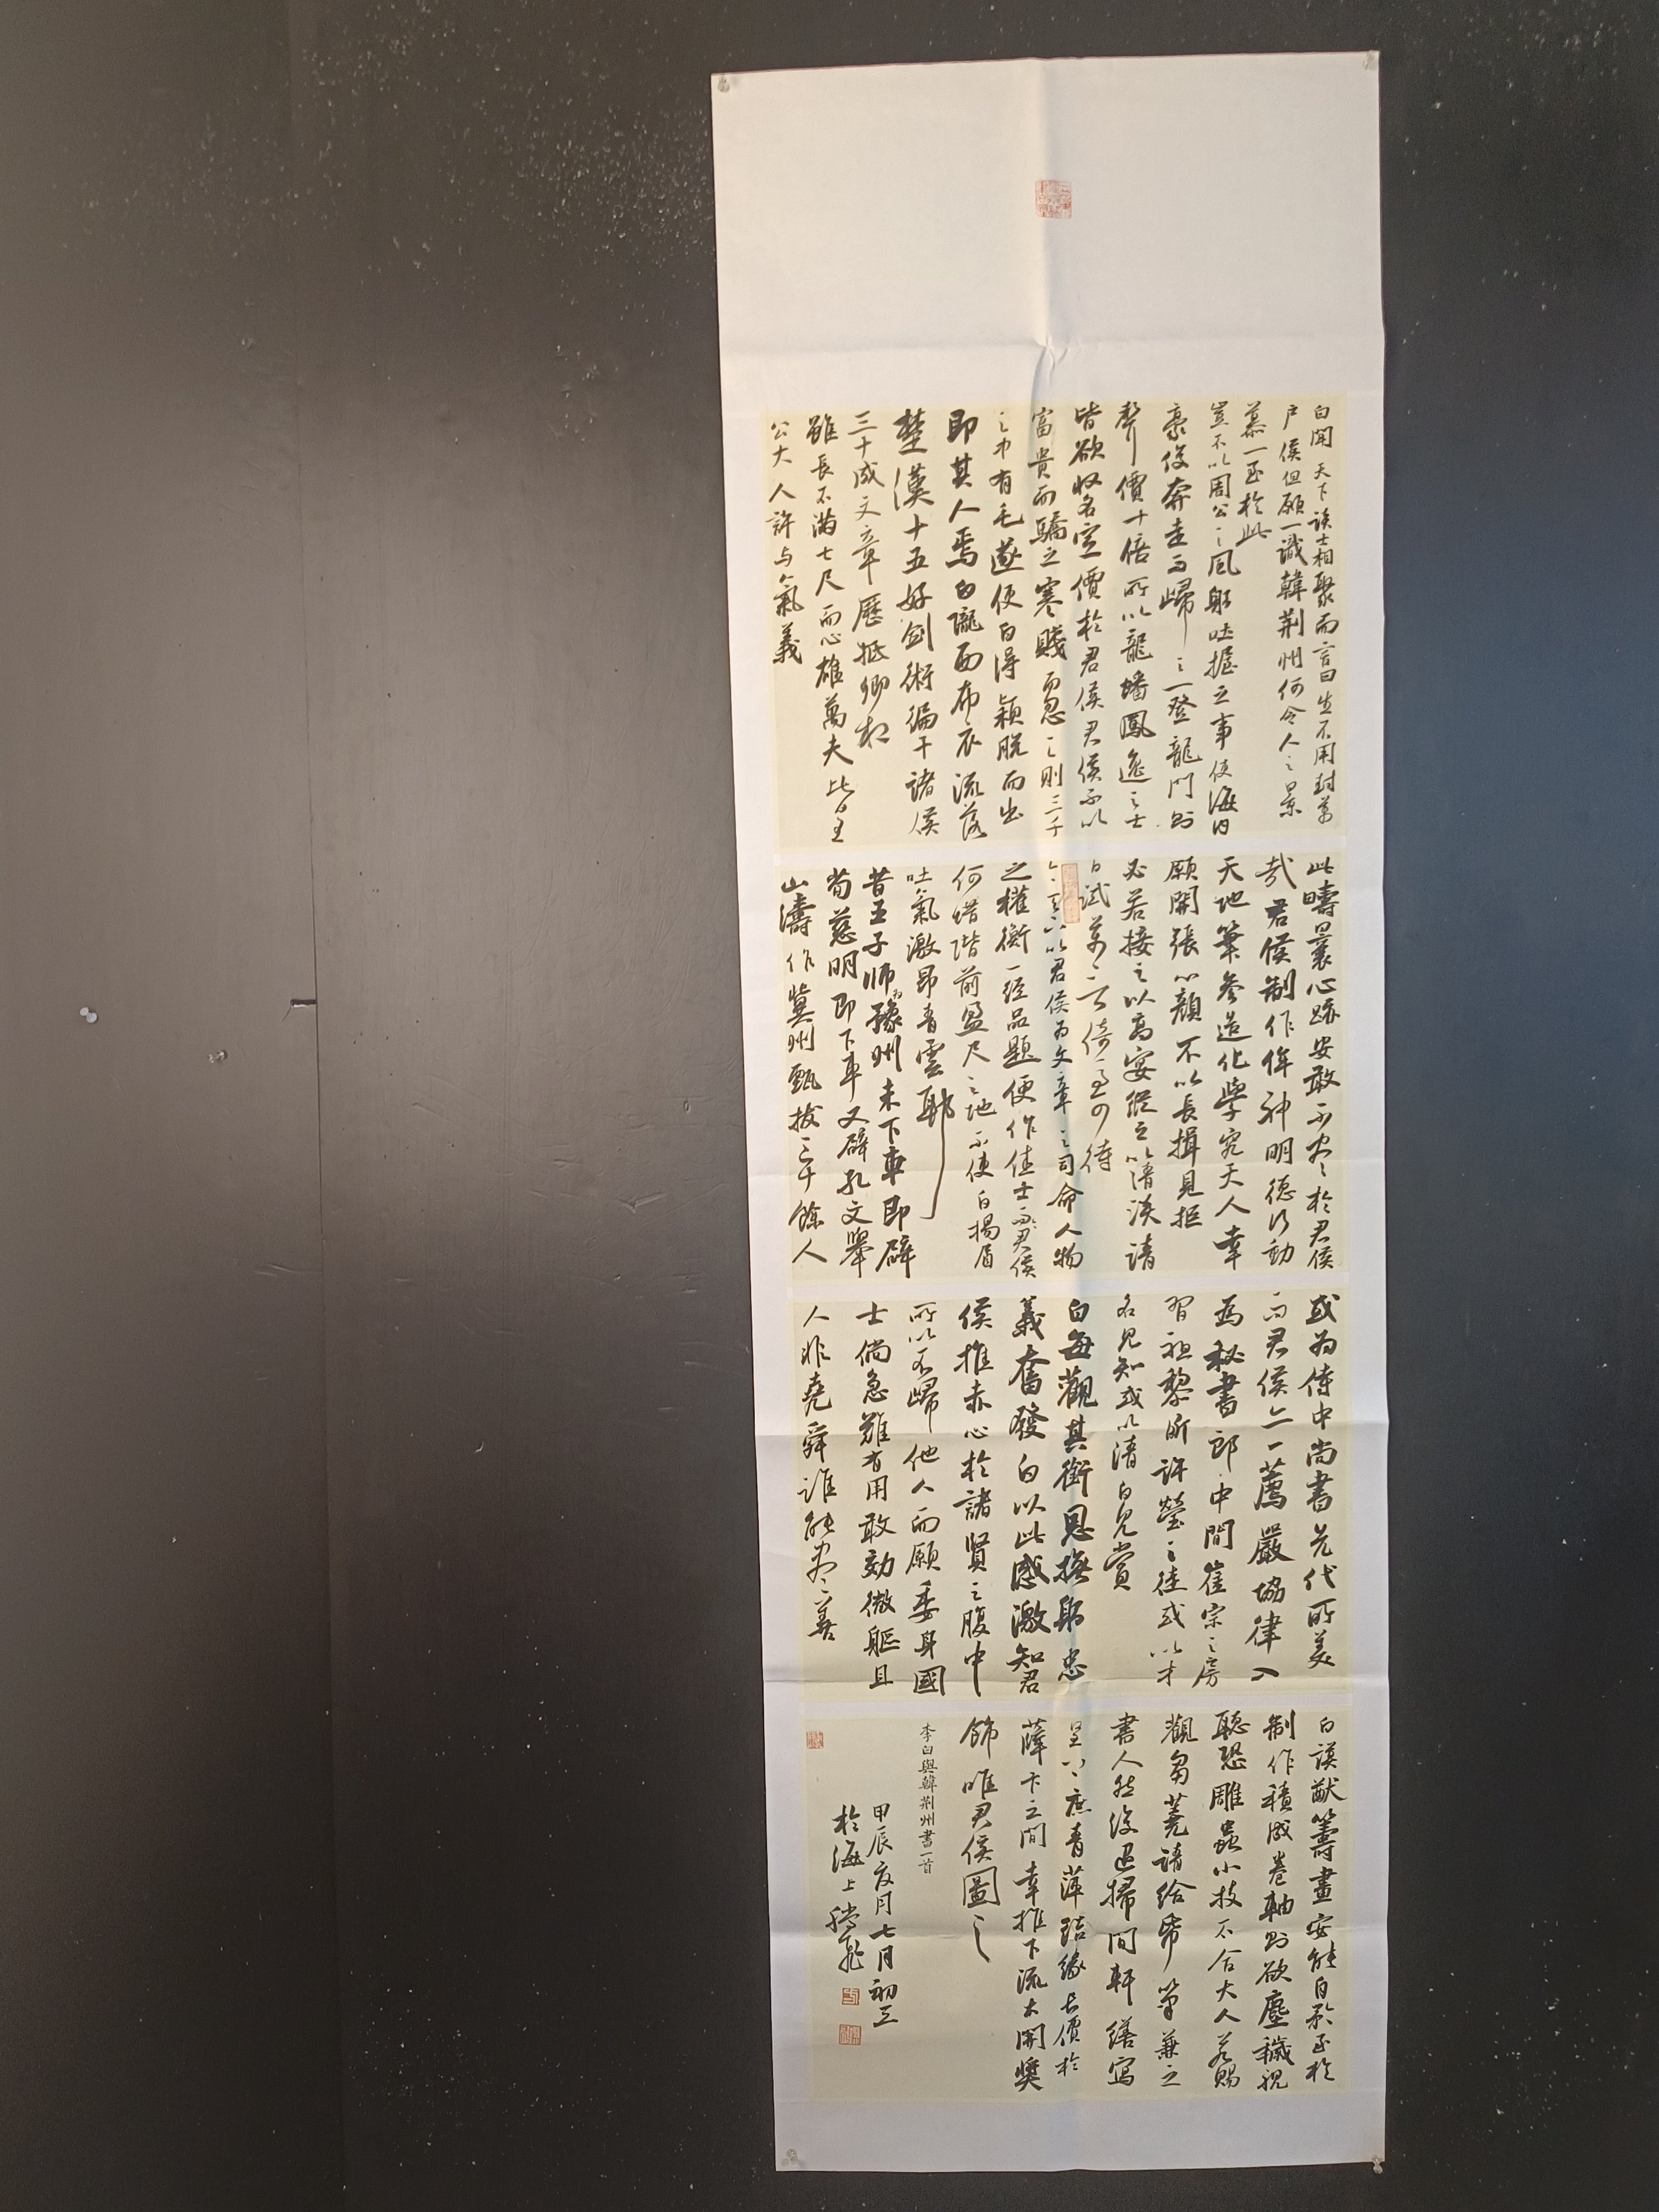 白聞天下談士相聚而言曰生不用封萬
户侯但願一識韓荆州何令人之景
慕一至於此
豈不以周公之風躬吐握之事使海内
豪俊奔走而歸之一登龍門則
聲價十倍所以龍蟠鳳逸之士
皆欲收名定價於君侯君侯不以
富貴而驕之寒賤而忽之則三千
之中有毛遂使白得穎脱而出
即其人焉白隴西布衣流落
楚漢十五好劍術徧干諸侯
三十成文章歷抵卿相
雖長不滿七尺而心雄萬夫皆王
公大人許与氣義
此疇曩心跡安敢不盡於君侯
哉君侯制作侔神明德行動
天地筆參造化學究天人幸
願開張心顔不以長揖見拒
必若接之以高宴縱之以清談請
日試萬言倚馬可待
今天下以君侯为文章之司命人物
之權衡一經品題便作佳士而君侯
何惜階前盈尺之地不使白揚眉
吐氣激昂青雲耶
昔王子師为豫州未下車即辟
荀慈明即下車又辟孔文舉
山濤作冀州甄拔三十餘人
或为侍中尚書先代所美
而君侯亦一薦嚴協律入
為秘書郎中間崔宗之房
習祖黎昕許瑩之徒或以才
名見知或以清白見賞
白每觀其銜恩撫躬忠
義奮發白以此感激知君
侯推赤心於諸賢之腹中
所以不歸他人而願委身國
士倘急難有用敢効微軀且
人非堯舜誰能盡善
白謨猷籌畫安能自矜至於
制作積成卷軸則欲塵穢視
聽恐雕蟲小技不合大人若賜
觀芻蕘請給帋筆兼之
書人然後退掃閒軒繕寫
呈上庶青萍結緑長價於
薛卞之間幸推下流大開獎
飾唯君侯圖之
李白與韓荆州書一首
甲辰夜月七月初三
於海上騰飛